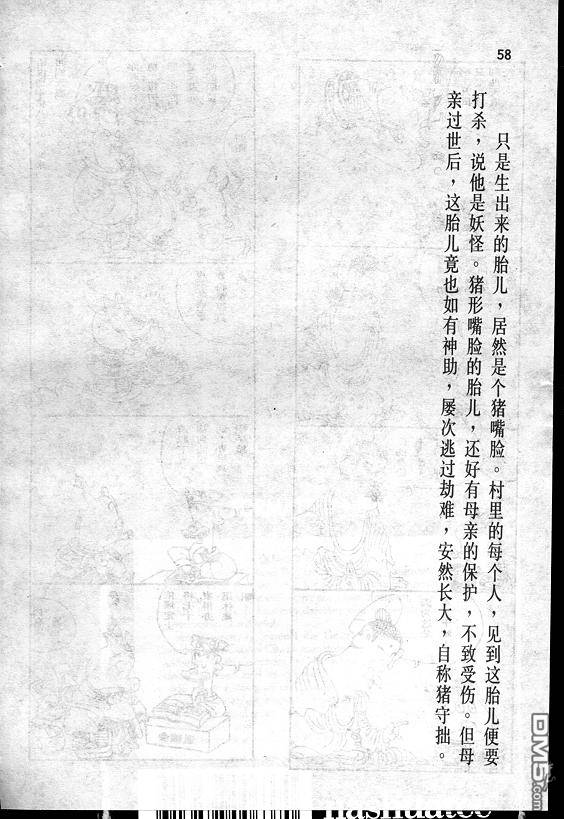 58
只是生出来的胎儿，居然是个猪嘴脸。村里的每个人，见到这胎儿便要
打杀，说他是妖怪。猪形嘴脸的胎儿，还好有母亲的保护，不致受伤。但母
亲过世后，这胎儿竟也如有神助，屡次逃过劫难，安然长大，自称猪守拙。
DM5.com